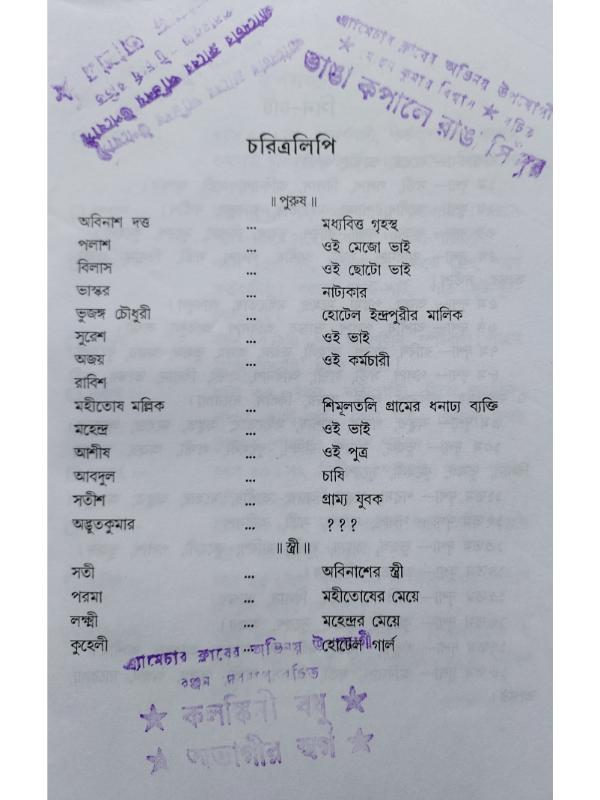 এ্যামেচার ক্লাবের অভিনয় উপযোগী
রচিত
ভাঙা কপালে রাঙা সিঁদুর
চরিত্রলিপি
॥ পুরুষ ॥
অবিনাশ দত্ত ... মধ্যবিত্ত গৃহস্থ
পলাশ ... ওই মেজো ভাই
বিলাস ... ওই ছোটো ভাই
ভাস্কর ... নাট্যকার
ভুজঙ্গ চৌধুরী ... হোটেল ইন্দ্রপুরীর মালিক
সুরেশ ... ওই ভাই
অজয় ... ওই কর্মচারী
রাবিশ
মহীতোষ মল্লিক ... শিমূলতলি গ্রামের ধনাঢ্য ব্যক্তি
মহেন্দ্র ... ওই ভাই
আশীষ ... ওই পুত্র
আবদুল ... চাষি
সতীশ ... গ্রাম্য যুবক
অদ্ভুতকুমার ... ? ? ?
॥ স্ত্রী ॥
সতী ... অবিনাশের স্ত্রী
পরমা ... মহীতোষের মেয়ে
লক্ষ্মী ... মহেন্দ্রর মেয়ে
কুহেলী ... হোটেল গার্ল
এ্যামেচার ক্লাবের অভিনয় উপযোগী
রচিত
কলঙ্কিনী বধূ
অভাগীর স্বর্গ